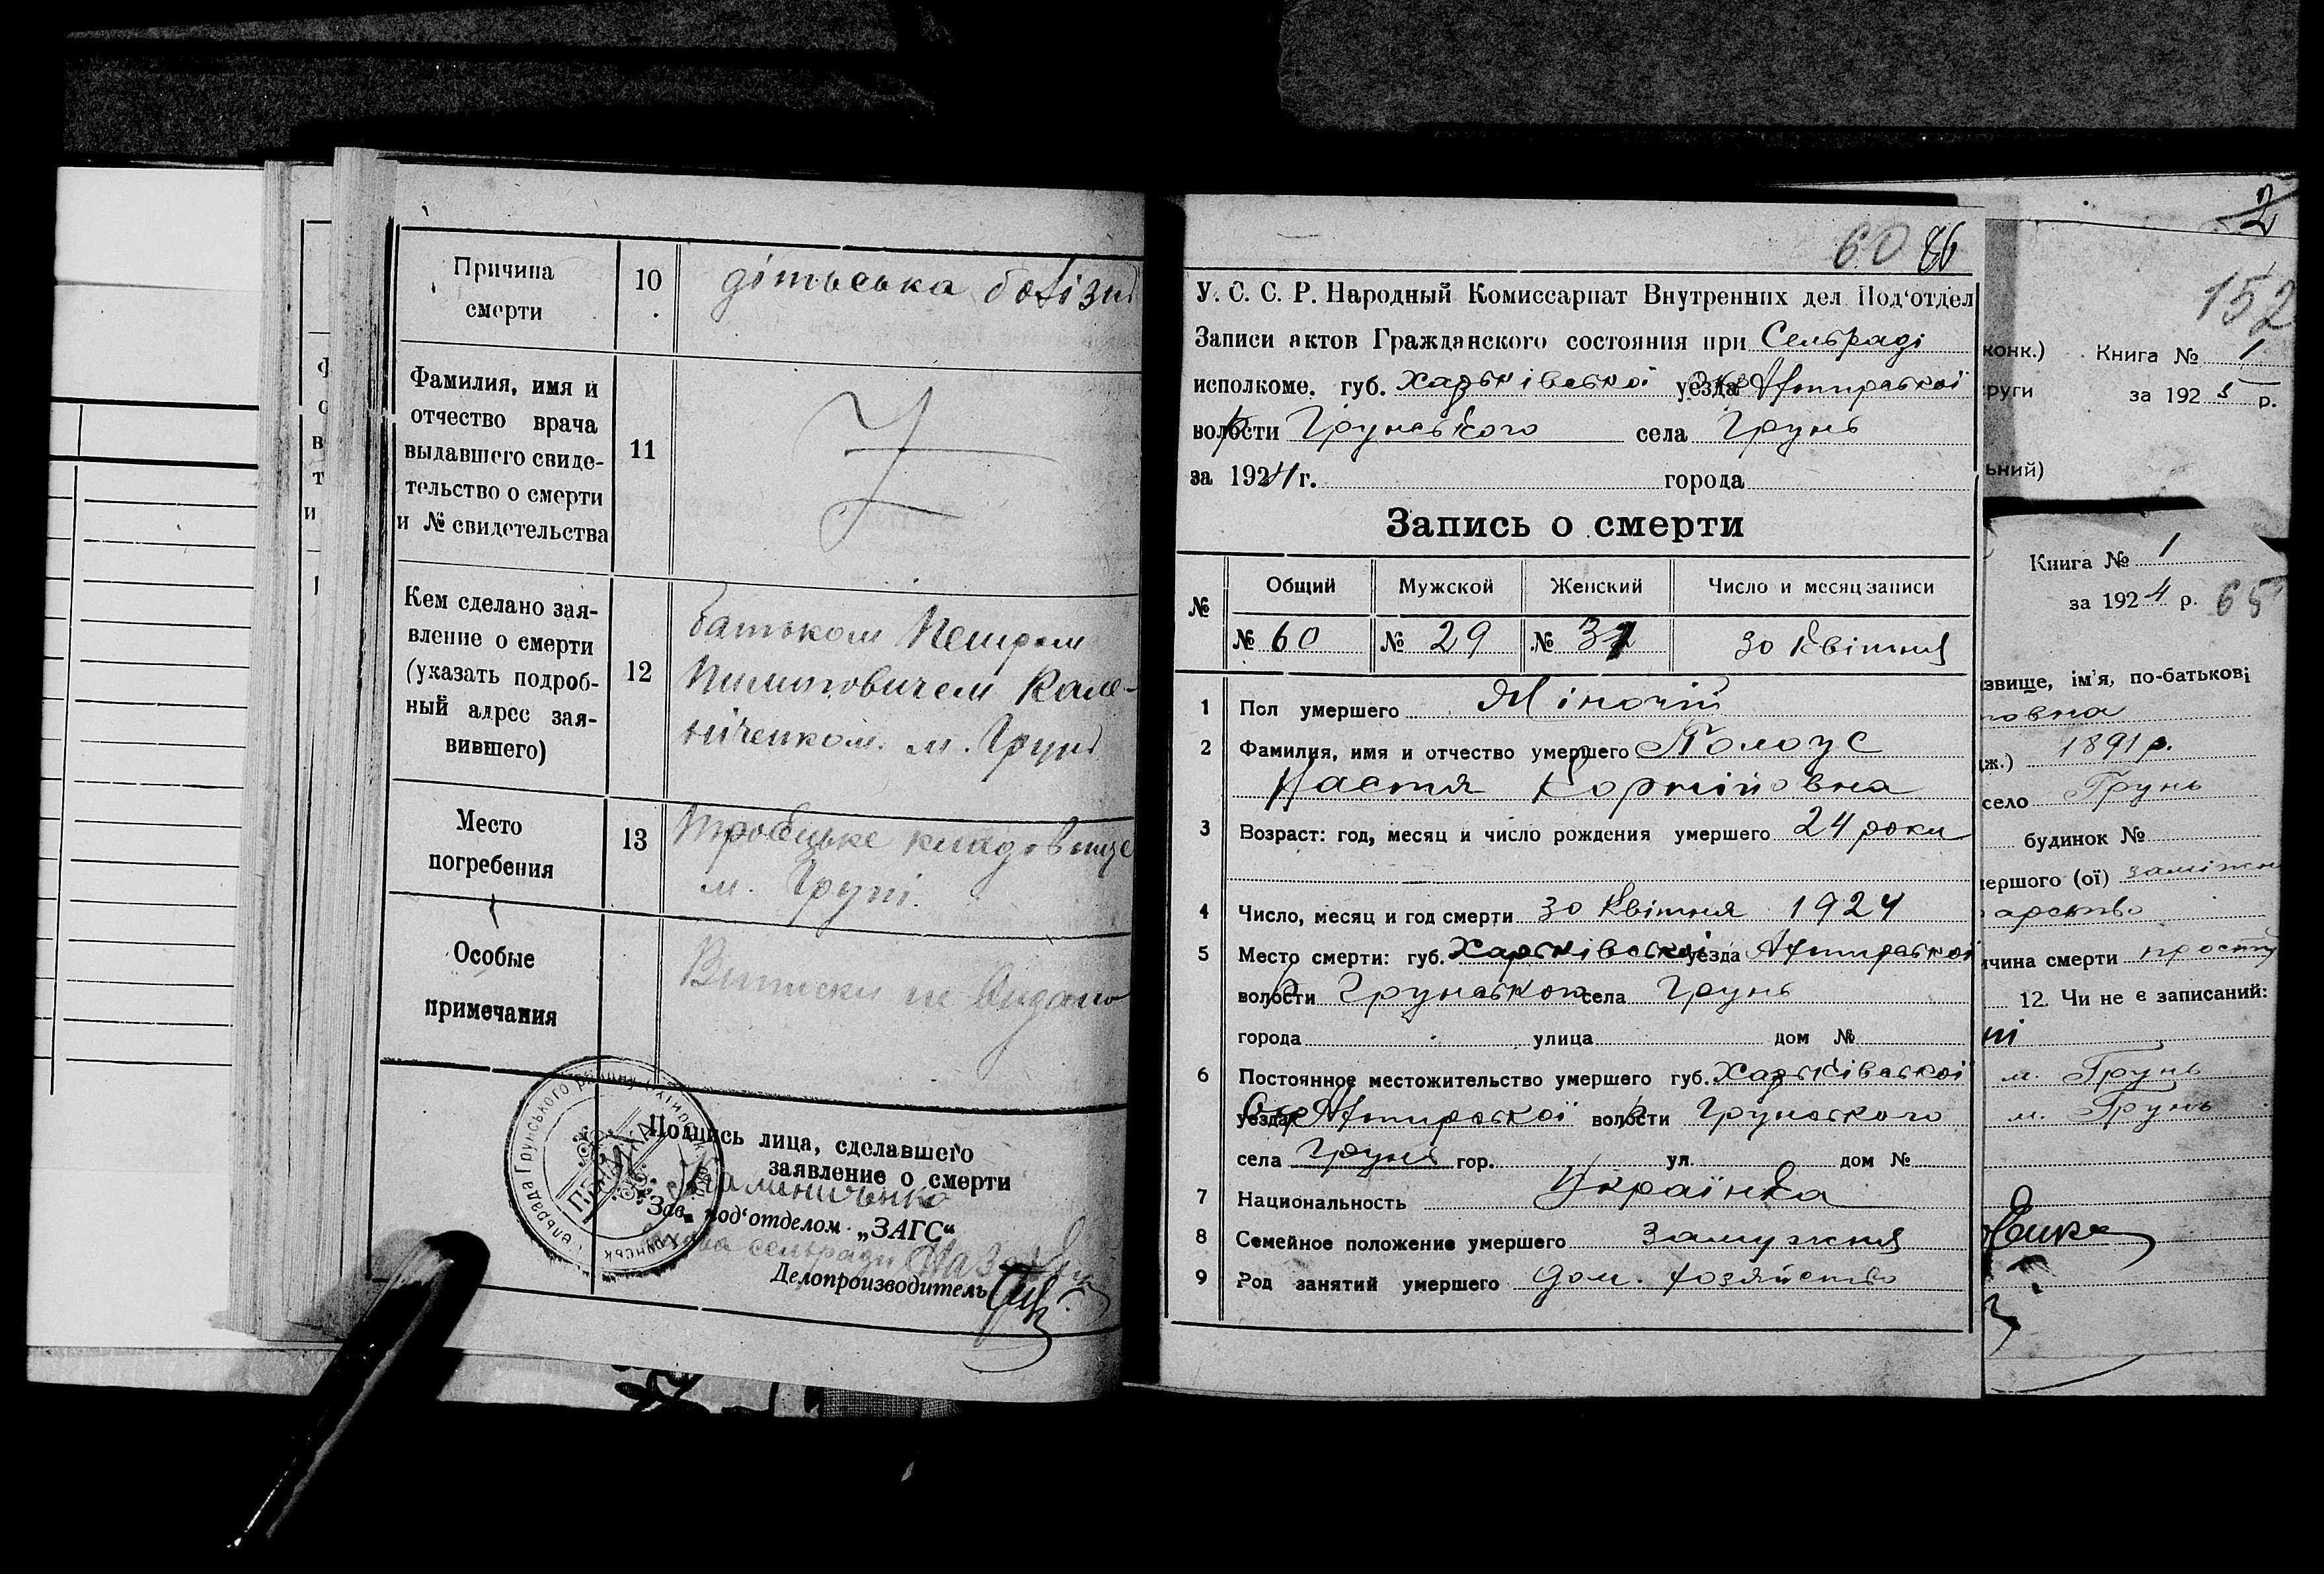 Причина
смерти
10
дітьська болізнь
Фамилия, имя и
отчество врача
выдавшего свиде-
тельство о смерти
и № свидетельства
11
Кем сделано зая-
вление о смерти
(указать подроб-
ный адрес зая-
вившего)
12
батьком Петром
Пилиповичем Кале-
ніченком. м. Грунь
Место
погребения
13
Троецьке кладовище
м. Груні.
Особые
примечания
Виписки не видано
Подпись лица, сделавшего
заявление о смерти
Калениченко
Зав. под'отделом „ЗАГС“
Голова сельради
Делопроизводитель
60 86
У. С. С. Р. Народный Комиссариат Внутренних дел Под'отдел
Записи актов Гражданского состояния при Сельраді
исполкоме. губ. Харьківської уезда Окр Ахтирської
волости Грунського села Грунь
за 1924 г. города
Запись о смерти
№ Общий Мужской Женский Число и месяц записи
№ 60 № 29 № 31 30 Квітня
1 Пол умершего Жіночій
2 Фамилия, имя и отчество умершего Голоус
Настя Корнійовна
3 Возраст: год, месяц и число рождения умершего 24 роки
4 Число, месяц и год смерти 30 Квітня 1924
5 Место смерти: губ. Харьківської уезда Ахтирської
волости Грунського села Грунь
города улица дом №
6 Постоянное местожительство умершего губ. Харьківської
уезда Окр Ахтирської волости Грунського
села Грунь гор. ул. дом №
7 Национальность Українка
8 Семейное положение умершего Замужня
9 Род занятий умершего дом. хозяйство
2
152
конк.) Книга № 1
руги за 1925 р.
ьний)
Книга № 1
за 1924 р. 65
ізвище, ім'я, по-батькові
повна
ж.) 1891 р.
село Грунь
будинок №
мершого (ої) заміжн
арство
ичина смерти прост
12. Чи не є записаний:
м. Грунь
м. Грунь